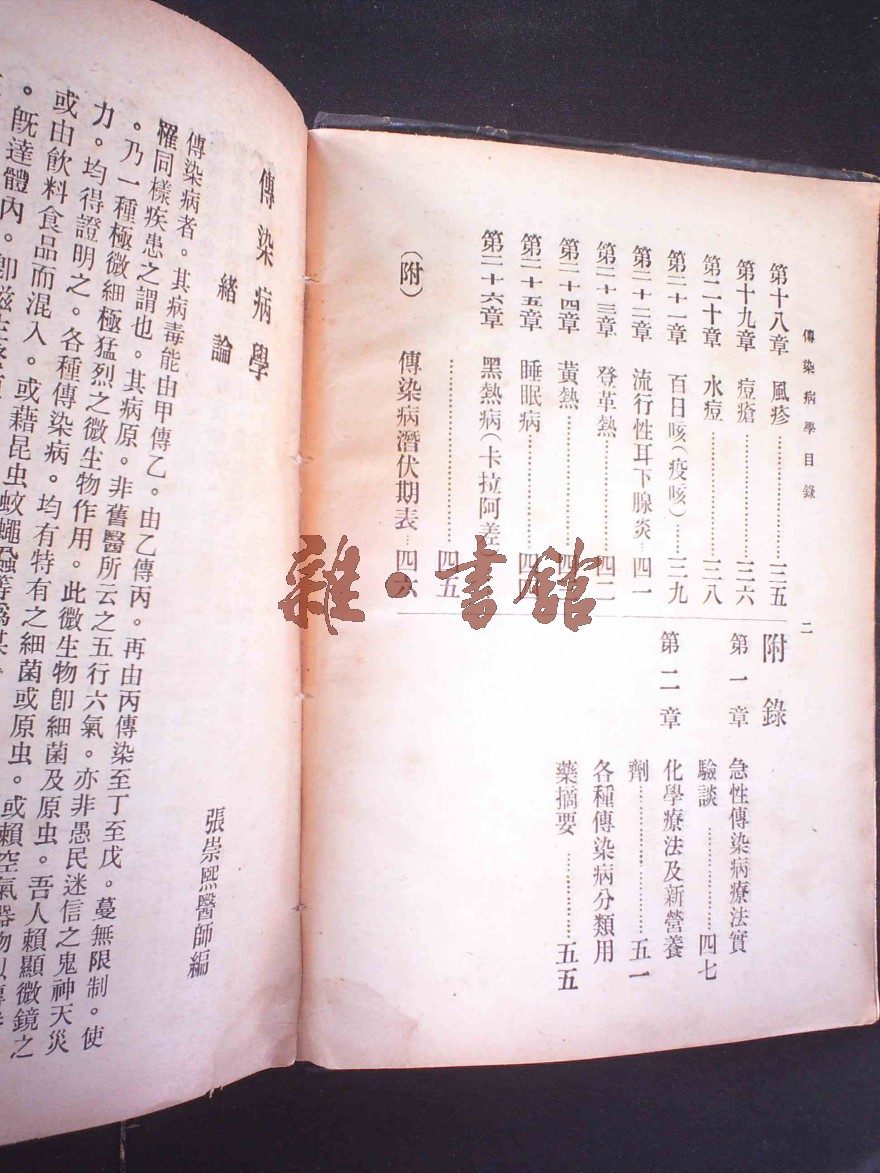 傳染病學目錄
二
第十八章 風疹………三五
第十九章 痘瘡………三六
第二十章 水痘………三八
第二十一章 百日咳(疫咳)……三九
第二十二章 流行性耳下腺炎…四一
第二十三章 登革熱………四二
第二十四章 黃熱………四
第二十五章 睡眠病………四四
第二十六章 黑熱病(卡拉阿差
………四五
(附) 傳染病潛伏期表…四六
附錄
第一章 急性傳染病療法實
驗談………四七
第二章 化學療法及新營養
劑………五一
各種傳染病分類用
藥摘要………五五
傳染病學
緒論
張崇熙醫師編
傳染病者。其病毒能由甲傳乙。由乙傳丙。再由丙傳染至丁至戊。蔓無限制。使
罹同樣疾患之謂也。其病原。非舊醫所云之五行六氣。亦非愚民迷信之鬼神天災
。乃一種極微細極猛烈之微生物作用。此微生物卽細菌及原虫。吾人賴顯微鏡之
力。均得證明之。各種傳染病。均有特有之細菌或原虫。或賴空氣器物以傳
或由飲料食品而混入。或藉昆虫蚊蠅蝨等爲某
。旣達體內。卽滋生
雜·書館